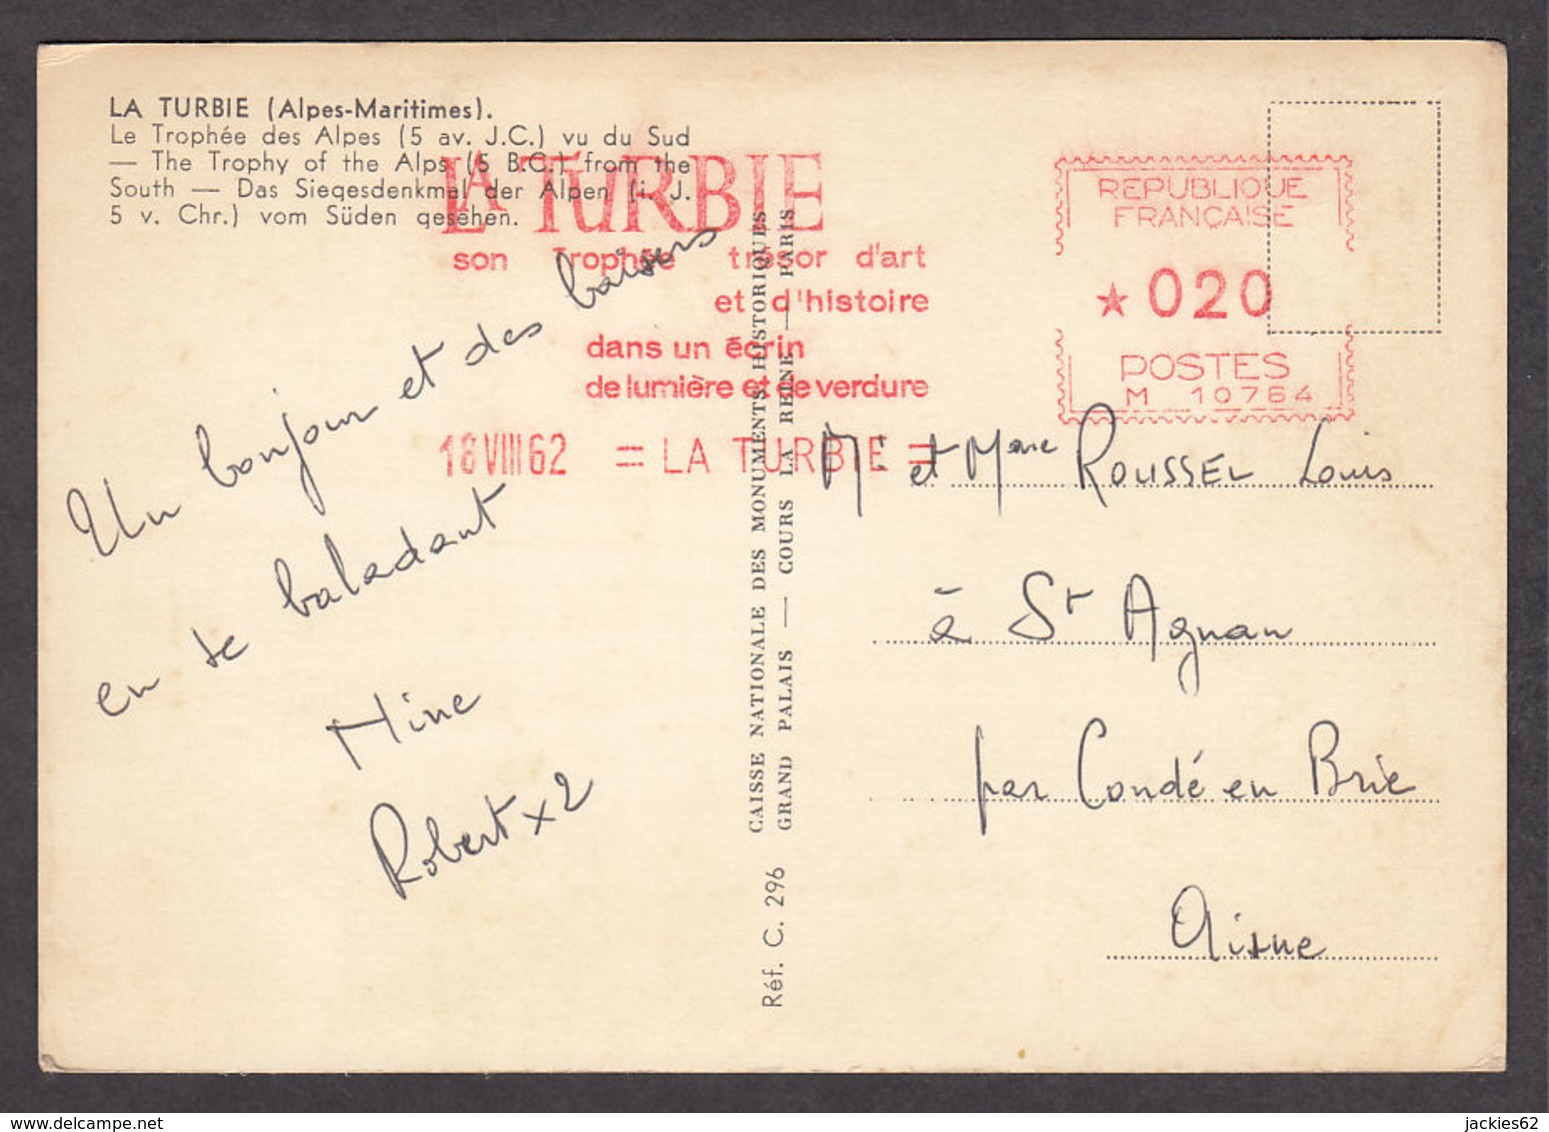 LA TURBIE (Alpes-Maritimes).
Le Trophée des Alpes (5 av. J.C.) vu du Sud
— The Trophy of the Alps (5 B.C.) from the
South — Das Siegesdenkmal der Alpen (i. J.
5 v. Chr.) vom Süden gesehen.
LA TURBIE
son Trophée trésor d'art
et d'histoire
dans un écrin
de lumière et de verdure
18 VIII 62 = LA TURBIE =
REPUBLIQUE
FRANÇAISE
★ 020
POSTES
M 10764
Un bonjour et des baisers
en se baladant
Mine
Robert x 2
CAISSE NATIONALE DES MONUMENTS HISTORIQUES
GRAND PALAIS — COURS LA REINE — PARIS
Réf. C. 296
Mr et Mme ROUSSEL Louis
à St Agnan
par Condé en Brie
Aisne
jackies62